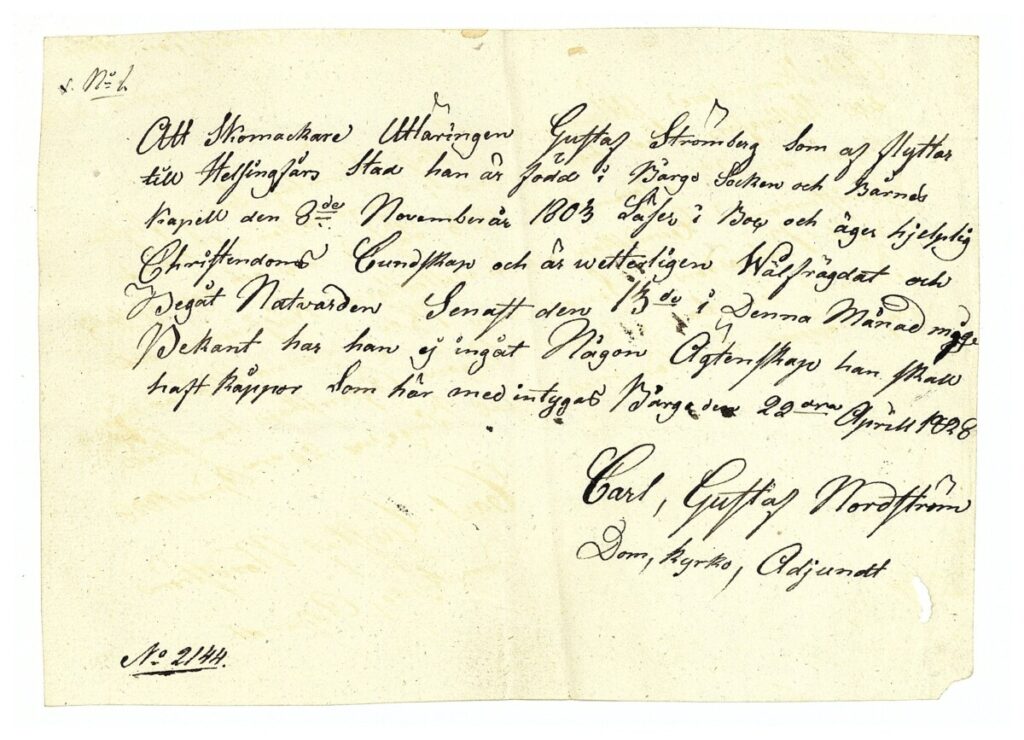 N° 1.
Att Skomackare Utläringen Gustaf Strömberg Som af flyttar
till Helsingfårs Stad han är född i Bårgo Socken och Bårneå
Kapell den 8de November år 1803 Läser i Boo och äger hjelplig
Christendoms Cundskap och är wetterligen Wälfrägdat och
Begåt Natvarden Senast den 13de i Denna Månad mig
Bekant har han ej ingåt Någon Ägtenskap han skall
haft kåppor Som här med intygas Bårgo den 22dra Aprill 1828
Carl, Gustaf Nordström
Dom, kyrko, Adjundt
N° 2144.